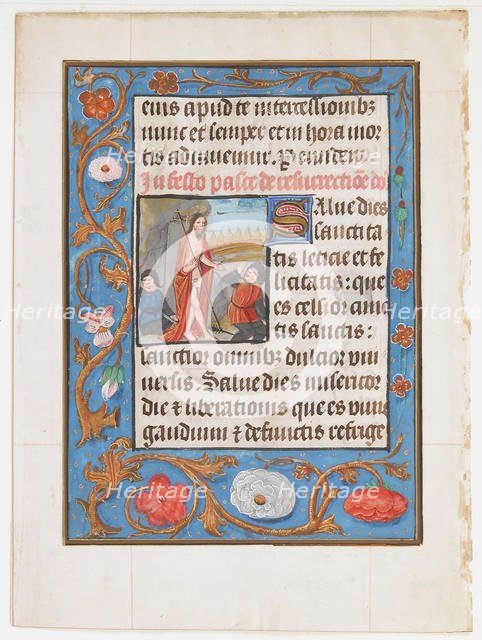 eius apud te intercessionibz
nunc et semper et in hora mor
tis adiuvemur. Per eundem
In festo pasce de resurrectiōe dō
Salve dies
sanctita
tis leticie et fe
licitatis: que
es celsior
tis sanctis:
sanctior omnibz dulcior uni
versis. Salve dies misericor
die & liberationis que es vivis
gaudium & defunctis refrige
Heritage
Heritage
Heritage
Heritage
Heritage
Heritage
Heritage
Heritage